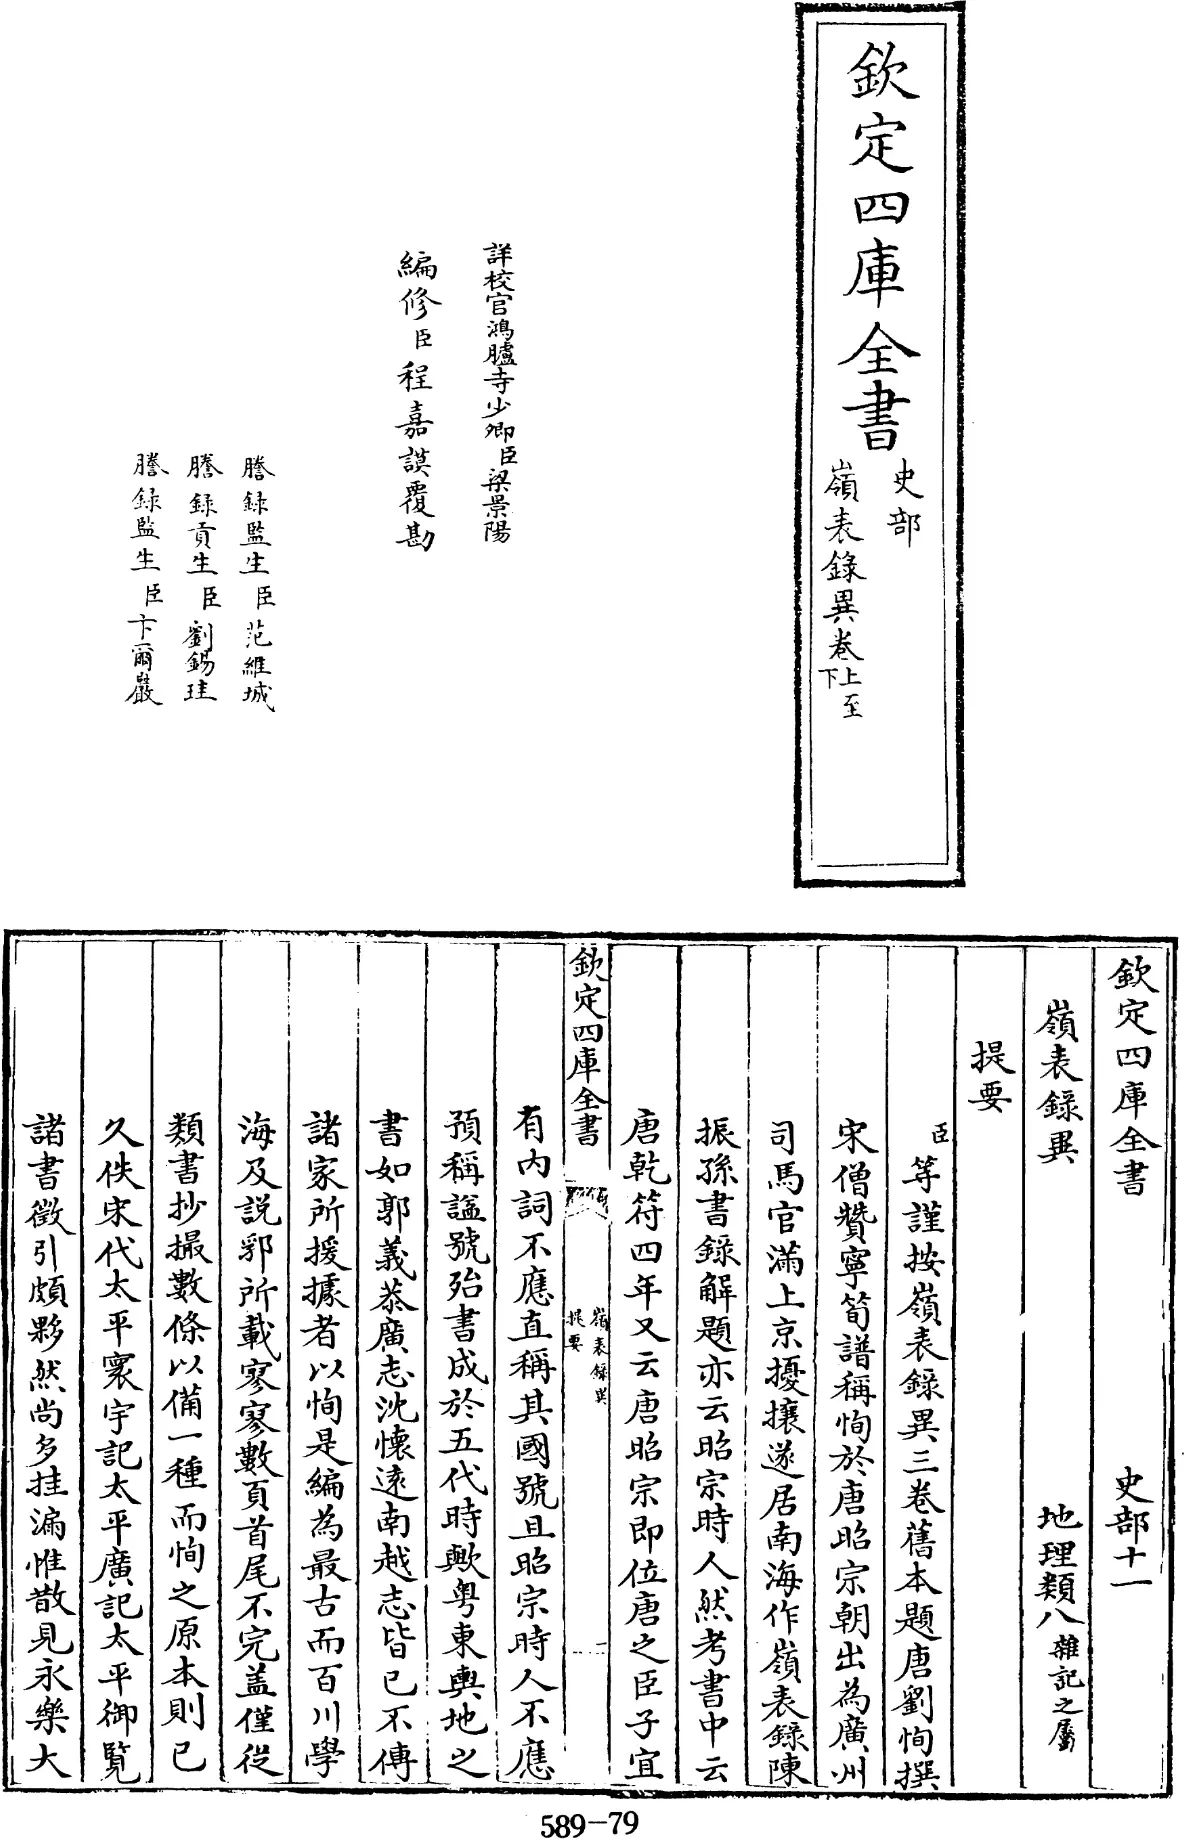 欽定四庫全書
史部
嶺表錄異卷上至
下
詳校官鴻臚寺少卿臣梁景陽
編修臣程嘉謨覆勘
謄錄監生臣范維城
謄錄貢生臣劉錫珪
謄錄監生臣卞爾巖
欽定四庫全書 史部十一
嶺表錄異 地理類八雜記之屬
提要
臣等謹按嶺表錄異三卷舊本題唐劉恂撰
宋僧贊寧筍譜稱恂於唐昭宗朝出為廣州
司馬官滿上京擾攘遂居南海作嶺表錄陳
振孫書錄解題亦云昭宗時人然考書中云
唐乾符四年又云唐昭宗即位唐之臣子宜
欽定四庫全書
嶺表錄異
提要
一
有內詞不應直稱其國號且昭宗時人不應
預稱諡號殆書成於五代時歟粤東輿地之
書如郭義恭廣志沈懷遠南越志皆已不傳
諸家所援據者以恂是編為最古而百川學
海及説郛所載寥寥數頁首尾不完蓋僅從
類書抄撮數條以備一種而恂之原本則已
久佚宋代太平寰宇記太平廣記太平御覽
諸書徵引頗夥然尚多挂漏惟散見永樂大
589-79